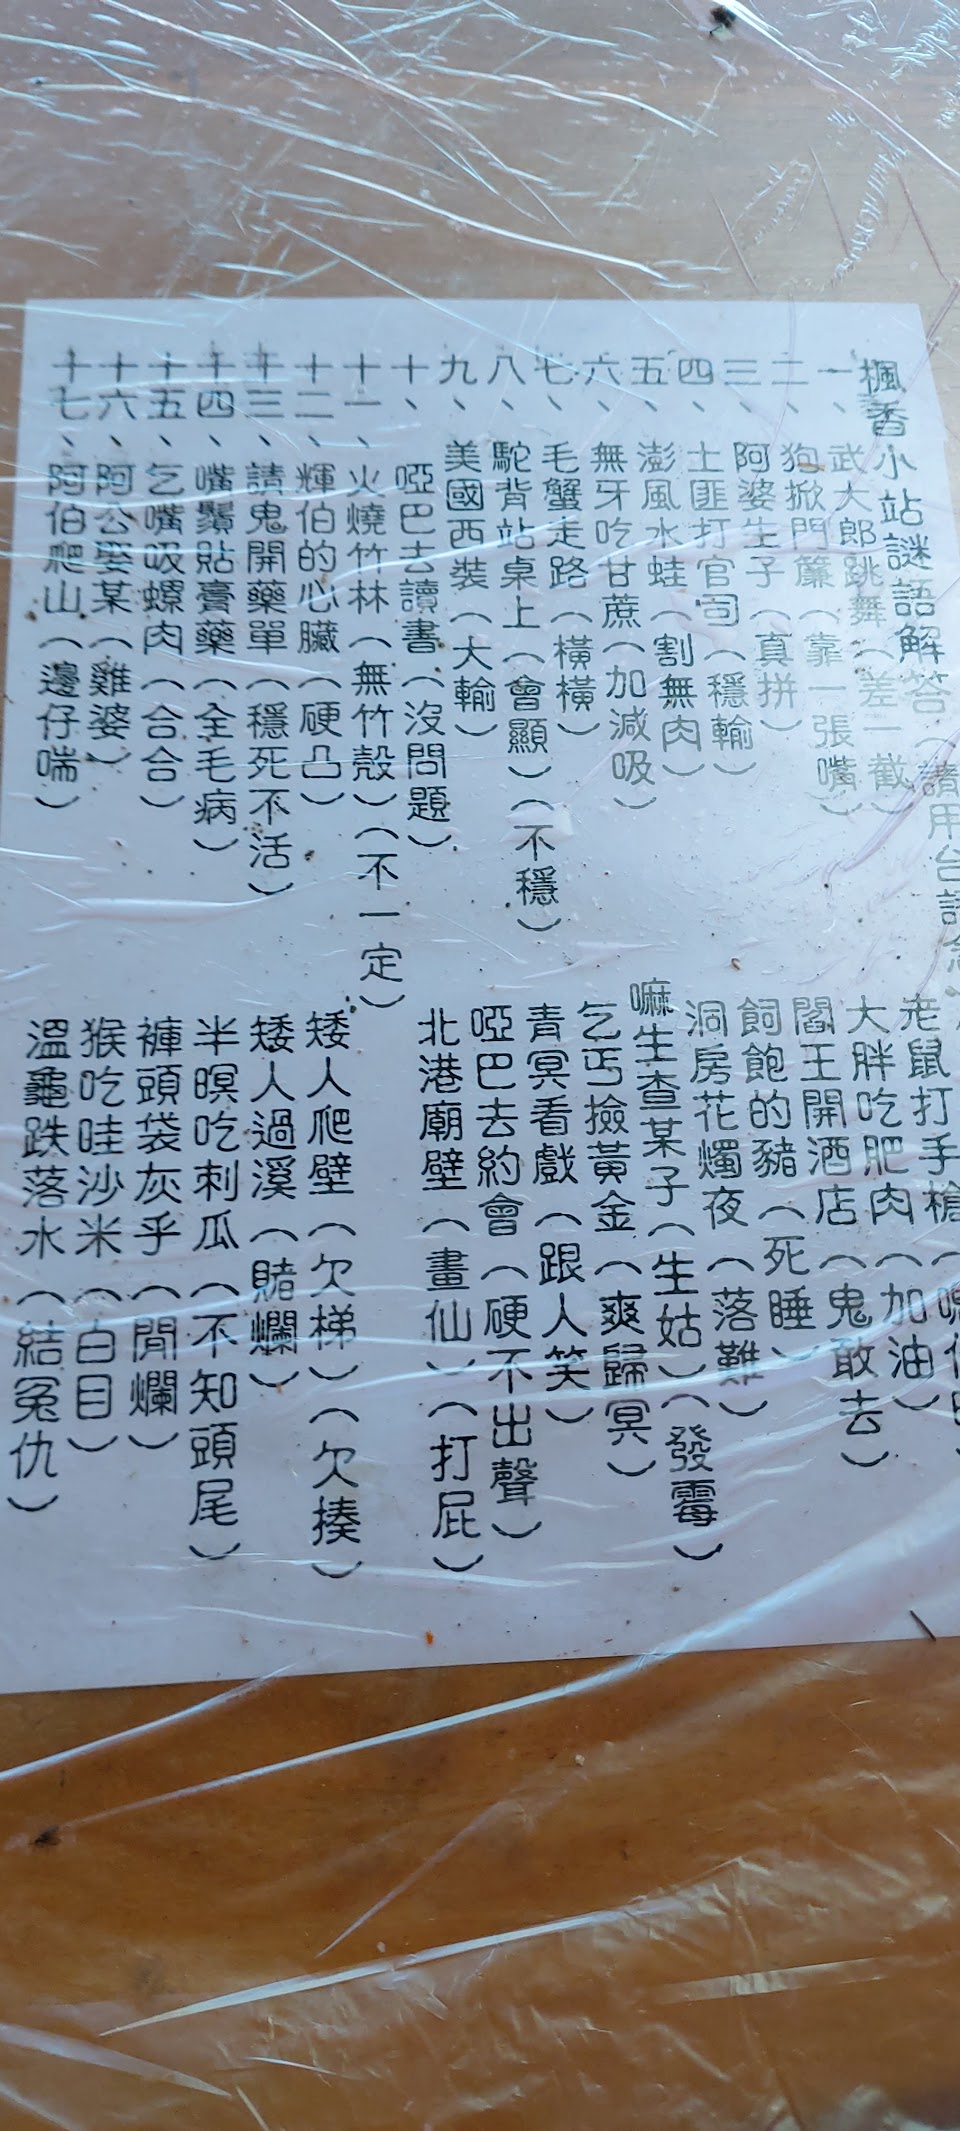 楓香小站謎語解答（請用台語念
一、武大郎跳舞（差二截） 老鼠打手槍（
二、狗掀門簾（靠一張嘴） 大胖吃肥肉（加油）
三、阿婆生子（真拼） 閻王開酒店（鬼敢去）
四、土匪打官司（穩輸） 飼飽的豬（死睡）
五、澎風水蛙（割無肉） 洞房花燭夜（落難）
六、無牙吃甘蔗（加減吸） 嘛生查某子（生姑）（發霉）
七、毛蟹走路（橫橫） 乞丐撿黃金（爽歸冥）
八、駝背站桌上（會顯）（不穩） 青冥看戲（跟人笑）
九、美國西裝（大輸） 啞巴去約會（硬不出聲）
十、啞巴去讀書（沒問題） 北港廟壁（畫仙）（打屁）
十一、火燒竹林（無竹殼）（不一定）
十二、輝伯的心臟（硬凸） 矮人爬壁（欠梯）（欠揍）
十三、請鬼開藥單（穩死不活） 矮人過溪（賭爛）
十四、嘴鬚貼膏藥（全毛病） 半暝吃刺瓜（不知頭尾）
十五、乞嘴吸螺肉（合合） 褲頭袋灰乎（閒爛）
十六、阿公娶某（雞婆） 猴吃哇沙米（白目）
十七、阿伯爬山（邊仔喘） 溫龜跌落水（結冤仇）